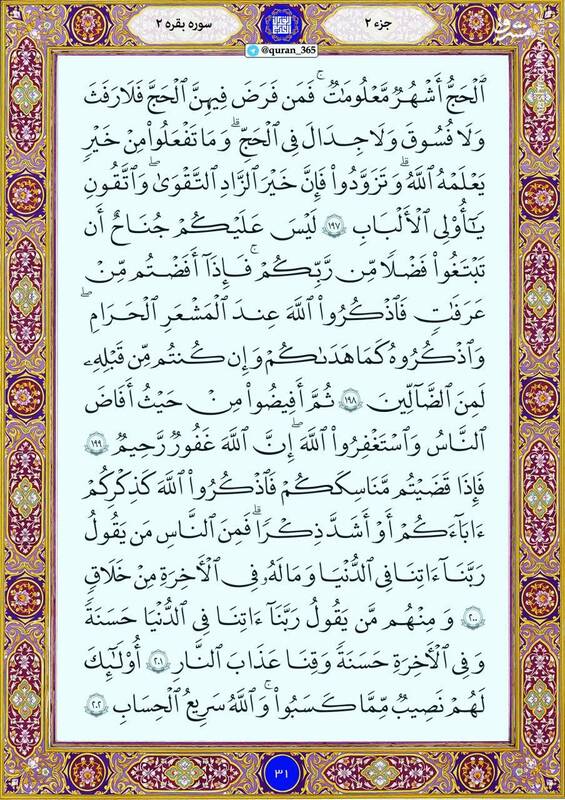 جزء ۲
سوره بقره ۲
@quran_365
ٱلۡحَجُّ أَشۡهُرٌ مَّعۡلُومَٰتٌۚ فَمَن فَرَضَ فِيهِنَّ ٱلۡحَجَّ فَلَا رَفَثَ
وَلَا فُسُوقَ وَلَا جِدَالَ فِى ٱلۡحَجِّۗ وَمَا تَفۡعَلُوا۟ مِنۡ خَيۡرٍ
يَعۡلَمۡهُ ٱللَّهُۗ وَتَزَوَّدُوا۟ فَإِنَّ خَيۡرَ ٱلزَّادِ ٱلتَّقۡوَىٰۖ وَٱتَّقُونِ
يَٰٓأُو۟لِى ٱلۡأَلۡبَٰبِ ۱۹۷ لَيۡسَ عَلَيۡكُمۡ جُنَاحٌ أَن
تَبۡتَغُوا۟ فَضۡلًا مِّن رَّبِّكُمۡۚ فَإِذَآ أَفَضۡتُم مِّنۡ
عَرَفَٰتٍ فَٱذۡكُرُوا۟ ٱللَّهَ عِندَ ٱلۡمَشۡعَرِ ٱلۡحَرَامِۖ
وَٱذۡكُرُوهُ كَمَا هَدَىٰكُمۡ وَإِن كُنتُم مِّن قَبۡلِهِۦ
لَمِنَ ٱلضَّآلِّينَ ۱۹۸ ثُمَّ أَفِيضُوا۟ مِنۡ حَيۡثُ أَفَاضَ
ٱلنَّاسُ وَٱسۡتَغۡفِرُوا۟ ٱللَّهَۖ إِنَّ ٱللَّهَ غَفُورٌ رَّحِيمٌ ۱۹۹
فَإِذَا قَضَيۡتُم مَّنَٰسِكَكُمۡ فَٱذۡكُرُوا۟ ٱللَّهَ كَذِكۡرِكُمۡ
ءَابَآءَكُمۡ أَوۡ أَشَدَّ ذِكۡرًاۗ فَمِنَ ٱلنَّاسِ مَن يَقُولُ
رَبَّنَآ ءَاتِنَا فِى ٱلدُّنۡيَا وَمَا لَهُۥ فِى ٱلۡأٓخِرَةِ مِنۡ خَلَٰقٍ
۲۰۰ وَمِنۡهُم مَّن يَقُولُ رَبَّنَآ ءَاتِنَا فِى ٱلدُّنۡيَا حَسَنَةً
وَفِى ٱلۡأٓخِرَةِ حَسَنَةً وَقِنَا عَذَابَ ٱلنَّارِ ۲۰۱ أُو۟لَٰٓئِكَ
لَهُمۡ نَصِيبٌ مِّمَّا كَسَبُوا۟ۚ وَٱللَّهُ سَرِيعُ ٱلۡحِسَابِ ۲۰۲
۳۱